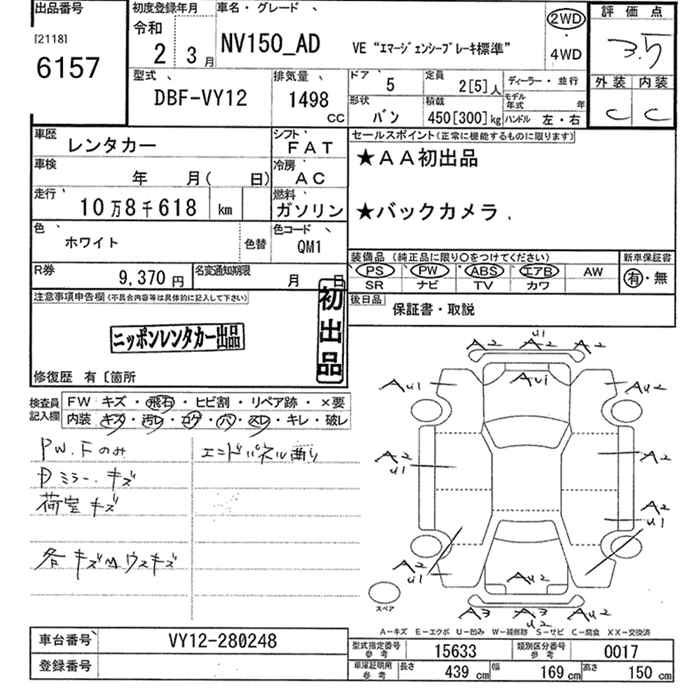 出品番号
[2118]
6157
初度登録年月
令和
2 3月
車名・グレード
NV150_AD
VE “エマージェンシーブレーキ標準”
2WD
・
4WD
評価点
3.5
外装 内装
C C
型式
DBF-VY12
排気量
1498
CC
ドア 5
定員 2[5]人
ディーラー・並行
形状 バン
積載 450[300]kg
モデル年式 年
ハンドル 左・右
車歴 レンタカー
シフト FAT
車検 年 月( 日)
冷房 AC
走行 10万8千618 km
燃料 ガソリン
色 ホワイト
色替
色コード QM1
R券 9,370円
名変通知期限 月 日
セールスポイント(正常に機能するものに限ります)
★AA初出品
★バックカメラ.
装備品 (純正品に限り○をつけてください)
PS PW ABS エアB AW
SR ナビ TV カワ
新車保証書
有・無
後日品
保証書・取説
注意事項申告欄(不具合内容等は具体的に記入して下さい)
ニッポンレンタカー出品
初出品
修復歴 有〔箇所
検査員記入欄
FW キズ・飛石・ヒビ割・リペア跡・×要
内装・キズ・汚レ・コゲ・穴・スレ・キレ・破レ
PW.Fのみ
Dミラー.キズ
荷室キズ
各キズ
ウスキズ
エンドパネル曲り
U1
A2 A2 A2
AU1 AU1 AU2
A2 U1 A2
A2 U1
A2 U1 A2
AU2
A3 A3 AU2
U2
スペア
A-キズ E-エクボ U-凹み W-補修跡 S-サビ C-腐食 XX-交換済
車台番号 VY12-280248
登録番号
型式指定番号 参考 15633
類別区分番号 参考 0017
車庫証明用 参考 長さ 439cm 幅 169cm 高さ 150cm